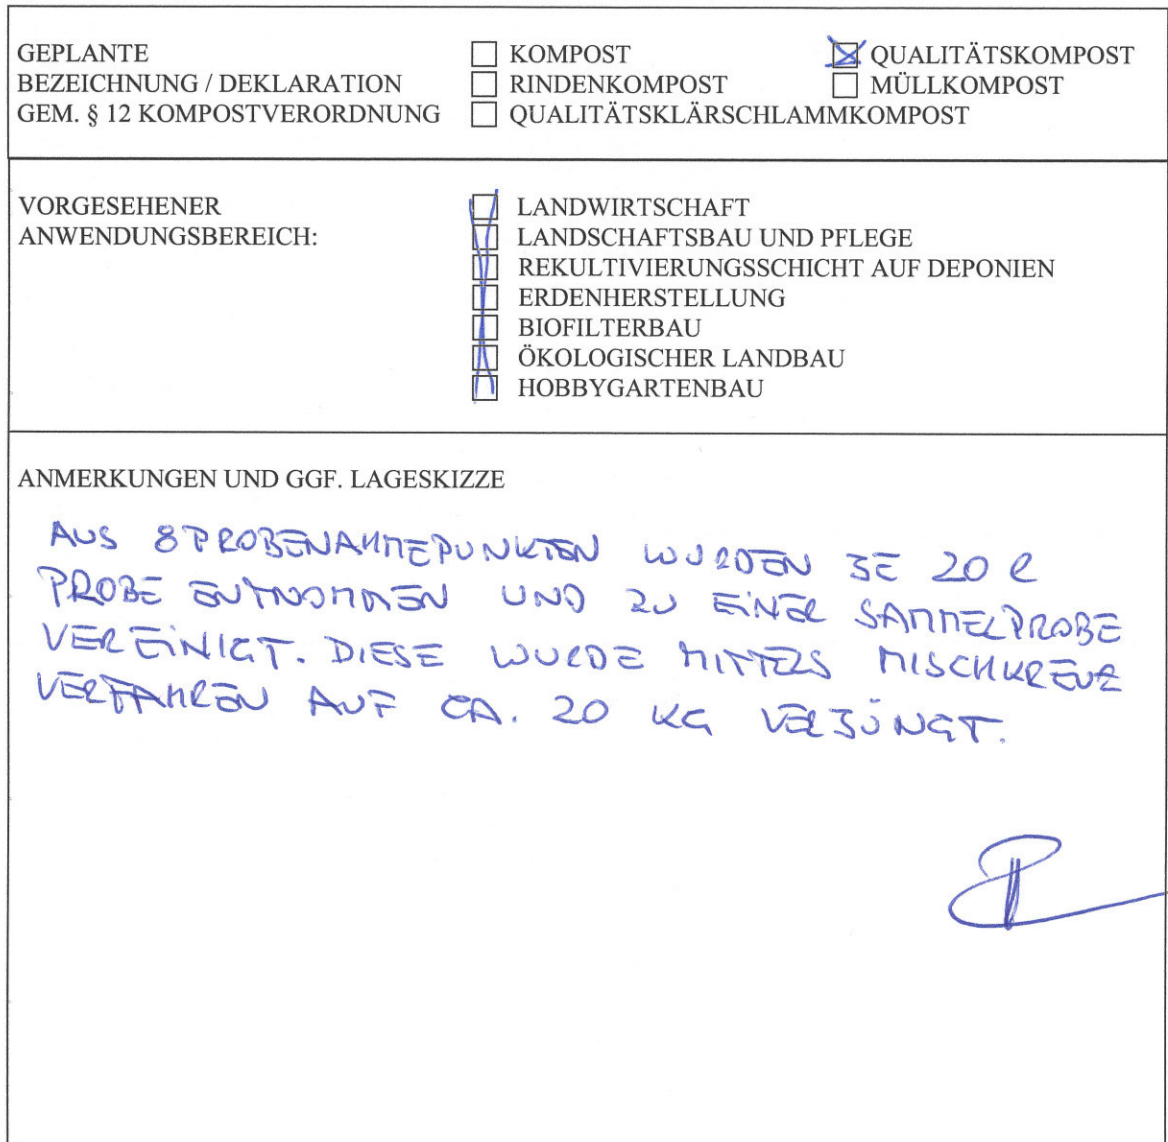 GEPLANTE
BEZEICHNUNG / DEKLARATION
GEM. § 12 KOMPOSTVERORDNUNG
☐ KOMPOST ☒ QUALITÄTSKOMPOST
☐ RINDENKOMPOST ☐ MÜLLKOMPOST
☐ QUALITÄTSKLÄRSCHLAMMKOMPOST
VORGESEHENER
ANWENDUNGSBEREICH:
☒ LANDWIRTSCHAFT
☒ LANDSCHAFTSBAU UND PFLEGE
☒ REKULTIVIERUNGSSCHICHT AUF DEPONIEN
☒ ERDENHERSTELLUNG
☒ BIOFILTERBAU
☒ ÖKOLOGISCHER LANDBAU
☒ HOBBYGARTENBAU
ANMERKUNGEN UND GGF. LAGESKIZZE
AUS 8 PROBENAHMEPUNKTEN WURDEN JE 20 l
PROBE ENTNOMMEN UND ZU EINER SAMMELPROBE
VEREINIGT. DIESE WURDE MITTELS MISCHKREUZ
VERFAHREN AUF CA. 20 KG VERJÜNGT.